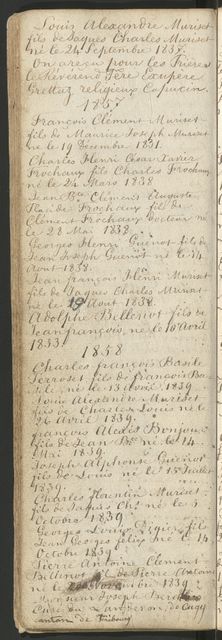 Louis Alexandre Muriset
fils de Jaques Charles Muriset
né le 24 Septembre 1837.
On a reçu pour les Prières
le Révérend Père Exupere
religieux Capucin.
1857
François Clément Muriset
fils de Maurice Joseph Muriset
né le 19 Décembre 1831.
Charles Henri César Xavier
Frochaux fils Charles Frochaux
né le 24 Mars 1838
Jean Bte Clément Auguste
Frochaux fils de
Clément Frochaux Docteur né
le 28 Mai 1838
Georges Henri Guenot fils de
Jean Joseph Guenot né le 14
Aout 1838.
Jean françois Henri Muriset
fils de Jaques Charles Muriset
né le 19 Aout 1838.
Adolphe Bellenot fils de
Jean françois, né le 10 Avril
1833
1858
Charles françois Basile
Perroset fils de francois Ba
né le 13 Avril 1839
Louis Alexandre Muriset
fils de Charles Louis né le
26 Avril 1839.
françois Alexis Bonjour
fils de Jean Bte né le 14
Mai 1839.
Joseph Alphonse Guenot
fils de Louis né le 15 Juillet
1839.
Charles Florentin Muriset
fils de Jaques Chs né le 3
Octobre 1839.
Georges Louis Digier fils
Jean Georges félix né le 14
Octobre 1839.
Pierre Antoine Clement
Bellenot fils de Pierre Antoine
né le 1839.
Jean Joseph
Curé du Landeron, de Cugy
canton de Fribourg